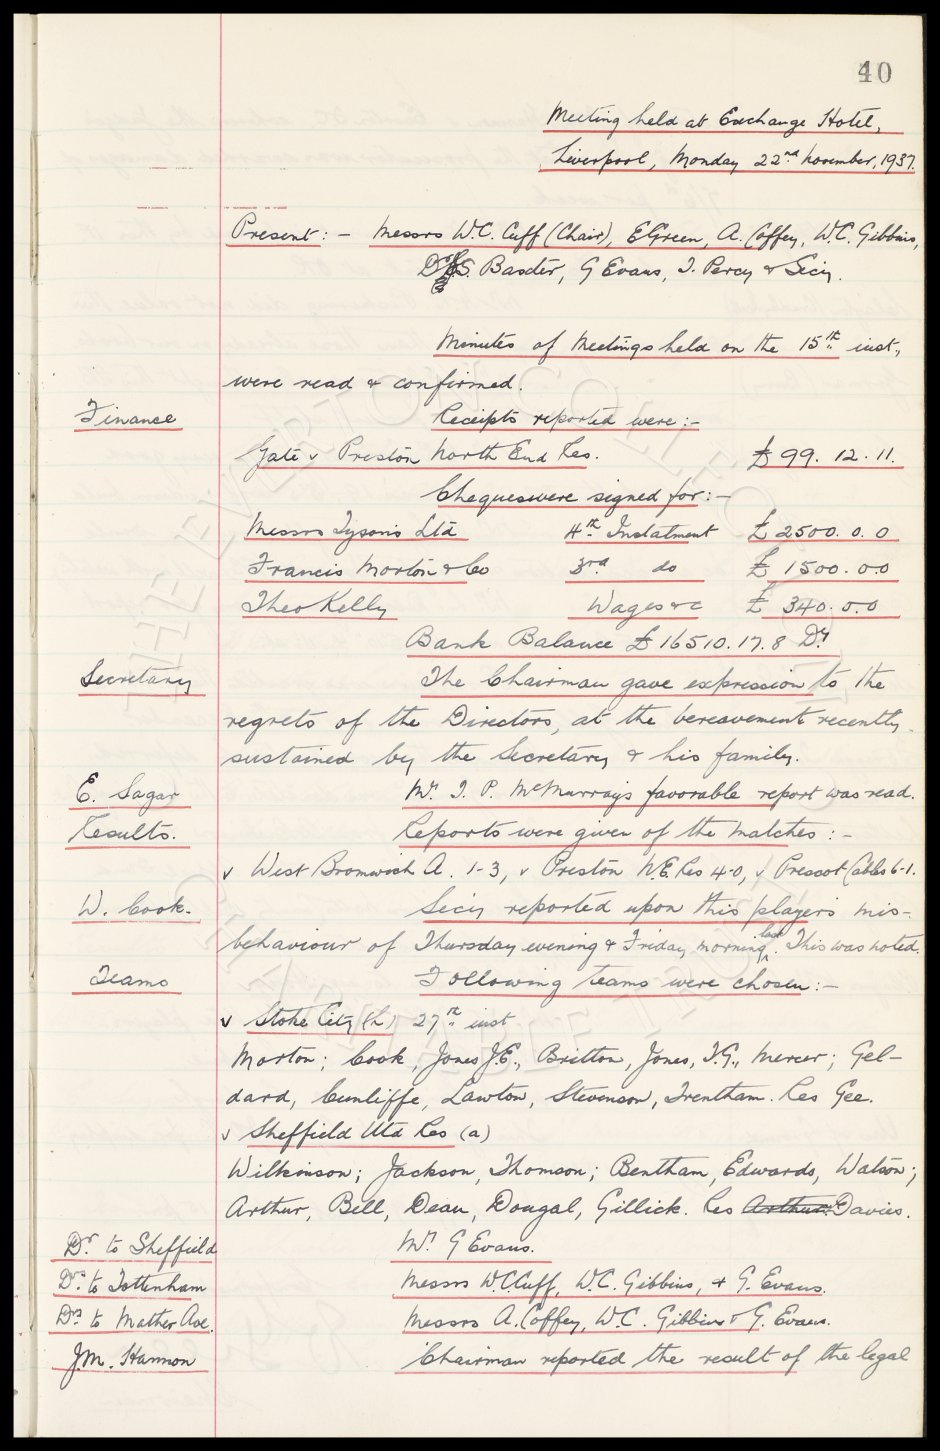 40
Meeting held at Exchange Hotel,
Liverpool, Monday 22nd November, 1937.
Present: - Messrs W.C. Cuff (Chair), E Green, A. Coffey, W.C. Gibbins,
Dr S. Baxter, G Evans, T. Percy & Secy.
Minutes of Meetings held on the 15th inst,
were read & confirmed.
Finance Receipts reported were:-
Gate v Preston North End Res. £99. 12. 11.
Cheques were signed for:-
Messrs Tysons Ltd 4th Instalment £2500. 0. 0
Francis Morton & Co 3rd do £1500. 0.0
Theo Kelly Wages &c £ 340. 0.0
Bank Balance £16510. 17. 8 Dr
Secretary The Chairman gave expression to the
regrets of the Directors, at the bereavement recently
sustained by the Secretary & his family.
E. Sagar Mr. T. P. McMurray's favorable report was read.
Results. Reports were given of the matches:-
v West Bromwich A. 1-3, v Preston N.E. Res 4-0, v Prescot Cables 6-1.
W. Cook. Secy reported upon this player's mis-
behaviour of Thursday evening & Friday morning last. This was noted.
Teams Following teams were chosen:-
v Stoke City (h) 27th inst
Morton; Cook, Jones J.E., Britton, Jones, T.G., Mercer; Gel-
dard, Cunliffe, Lawton, Stevenson, Trentham. Res Gee.
v Sheffield Utd Res (a)
Wilkinson; Jackson, Thomson; Bentham, Edwards, Watson;
Arthur, Bell, Dean, Dougal, Gillick. Res Arthur Davies.
Dr. to Sheffield Mr. G Evans.
Drs. to Tottenham Messrs W.C. Cuff, W.C. Gibbins, & G. Evans.
Drs to Mather Ave. Messrs A. Coffey, W.C. Gibbins & G. Evans.
J.M. Hannon Chairman reported the result of the legal